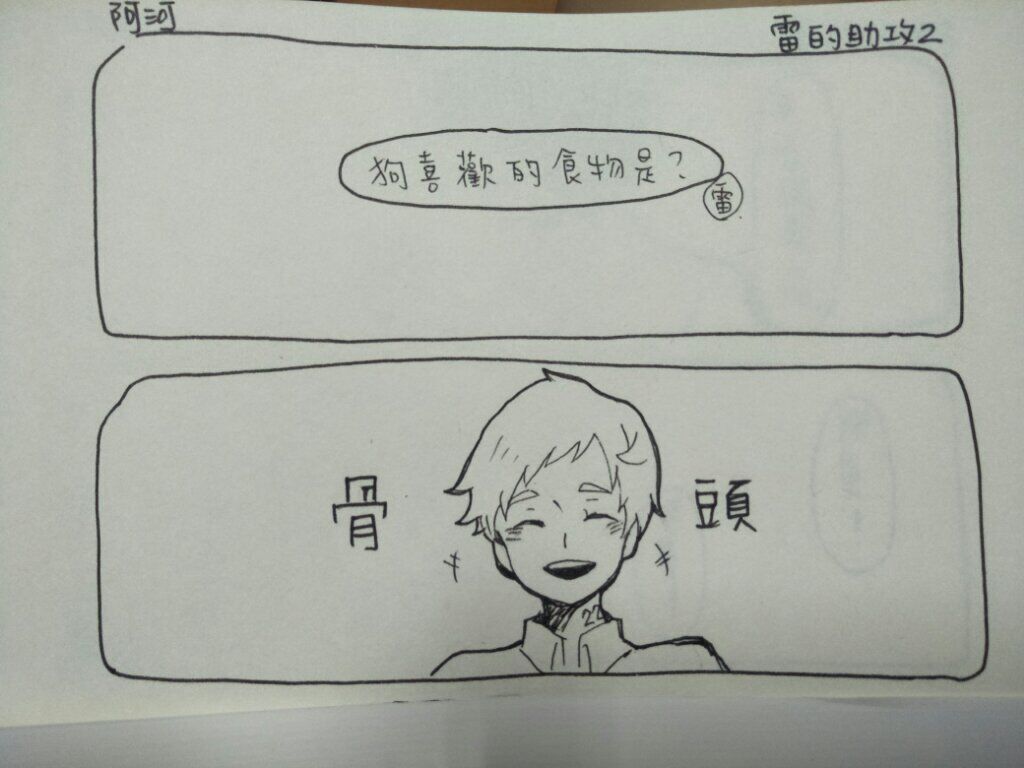 阿河
雷的助攻2
狗喜歡的食物是?
雷
骨頭
22